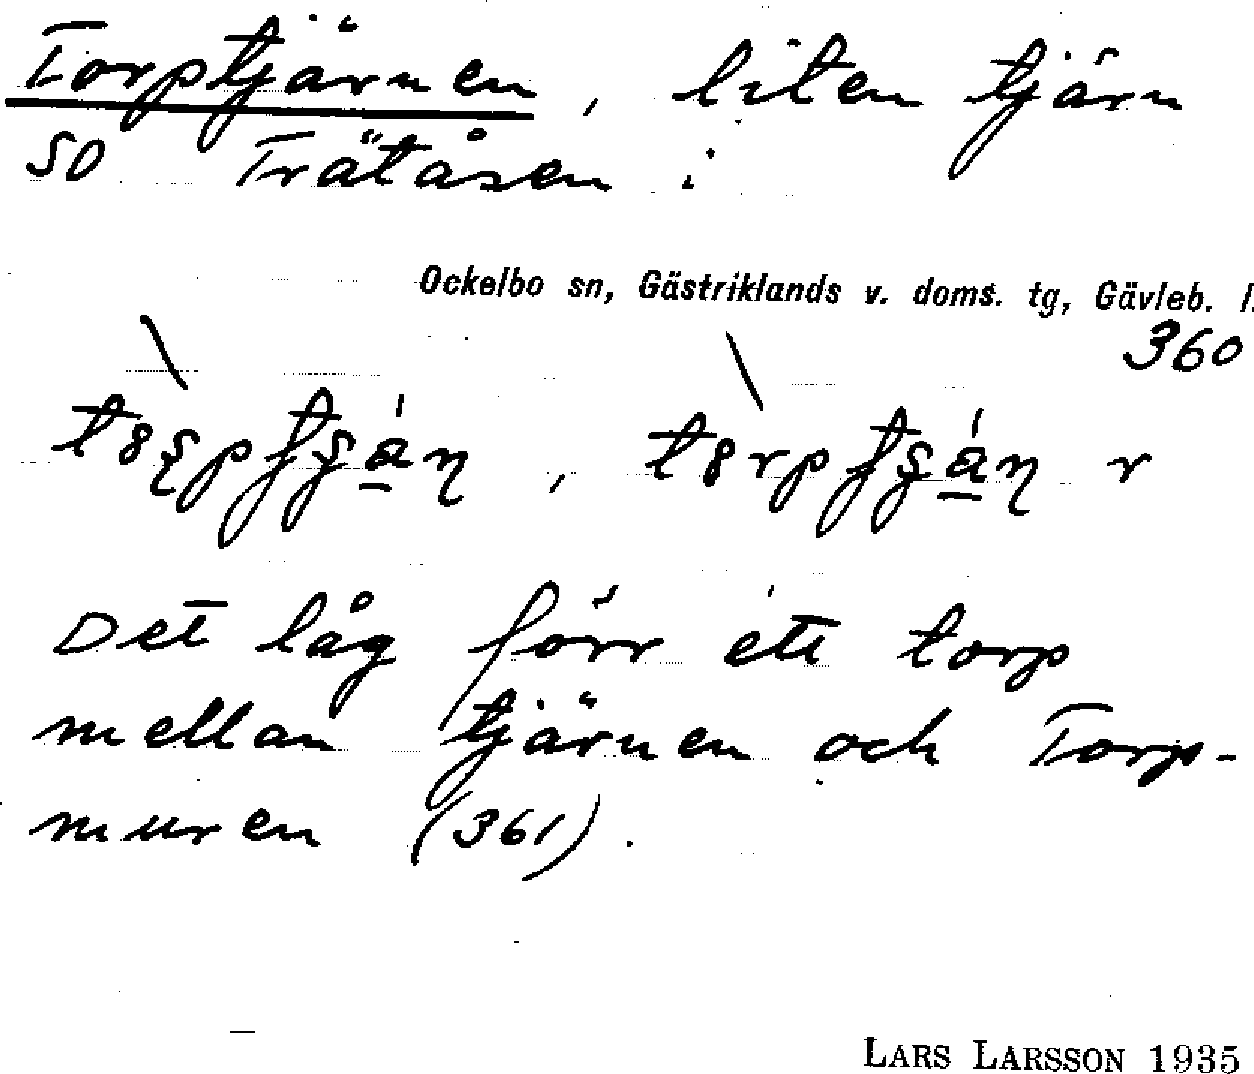 Torptjärnen, liten tjärn
SO Trätåsen :
Ockelbo sn, Gästriklands v. doms. tg, Gävleb. l.
360
Det låg förr ett torp
mellan tjärnen och Torp-
muren (361).
LARS LARSSON 1935